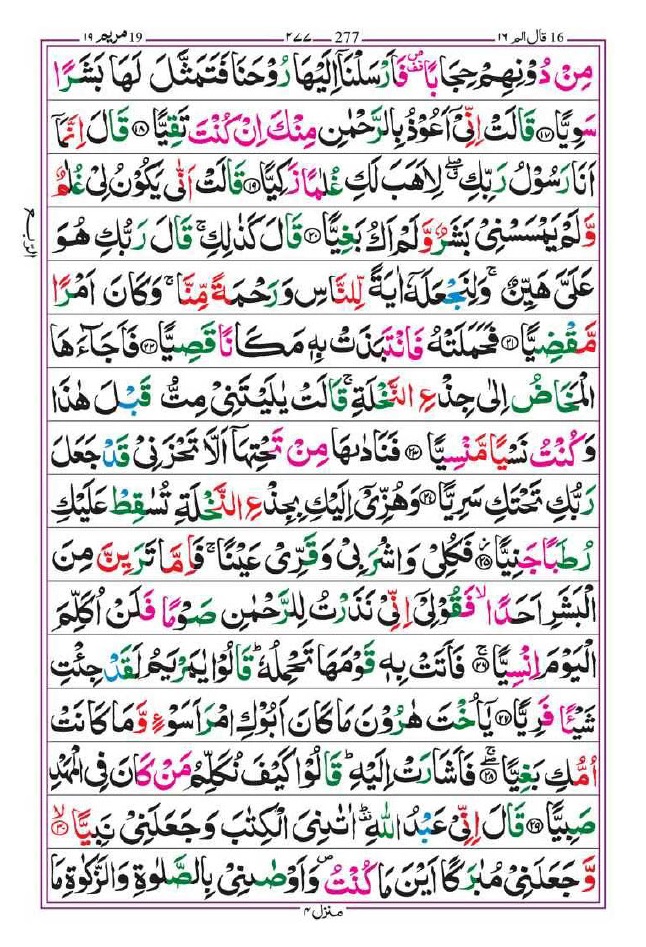 19 مريم ١٩ 277 ٢٧٧ 16 قال الم ١٦
مِنْ دُوْنِهِمْ حِجَابًا فَاَرْسَلْنَاۤ اِلَيْهَا رُوْحَنَا فَتَمَثَّلَ لَهَا بَشَرًا
سَوِيًّا ﴿١٧﴾ قَالَتْ اِنِّىْۤ اَعُوْذُ بِالرَّحْمٰنِ مِنْكَ اِنْ كُنْتَ تَقِيًّا ﴿١٨﴾ قَالَ اِنَّمَاۤ
اَنَا رَسُوْلُ رَبِّكِ ۖ لِاَهَبَ لَكِ غُلٰمًا زَكِيًّا ﴿١٩﴾ قَالَتْ اَنّٰى يَكُوْنُ لِىْ غُلٰمٌ
وَّلَمْ يَمْسَسْنِىْ بَشَرٌ وَّلَمْ اَكُ بَغِيًّا ﴿٢٠﴾ قَالَ كَذٰلِكِ ۚ قَالَ رَبُّكِ هُوَ
الربع
عَلَىَّ هَيِّنٌ ۚ وَلِنَجْعَلَهٗۤ اٰيَةً لِّلنَّاسِ وَرَحْمَةً مِّنَّا ۚ وَكَانَ اَمْرًا
مَّقْضِيًّا ﴿٢١﴾ فَحَمَلَتْهُ فَانْتَبَذَتْ بِهٖ مَكَانًا قَصِيًّا ﴿٢٢﴾ فَاَجَآءَهَا
الْمَخَاضُ اِلٰى جِذْعِ النَّخْلَةِ ۚ قَالَتْ يٰلَيْتَنِىْ مِتُّ قَبْلَ هٰذَا
وَكُنْتُ نَسْيًا مَّنْسِيًّا ﴿٢٣﴾ فَنَادٰىهَا مِنْ تَحْتِهَاۤ اَلَّا تَحْزَنِىْ قَدْ جَعَلَ
رَبُّكِ تَحْتَكِ سَرِيًّا ﴿٢٤﴾ وَهُزِّىْۤ اِلَيْكِ بِجِذْعِ النَّخْلَةِ تُسٰقِطْ عَلَيْكِ
رُطَبًا جَنِيًّا ﴿٢٥﴾ فَكُلِىْ وَاشْرَبِىْ وَقَرِّىْ عَيْنًا ۚ فَاِمَّا تَرَيِنَّ مِنَ
الْبَشَرِ اَحَدًا ۙ فَقُوْلِىْۤ اِنِّىْ نَذَرْتُ لِلرَّحْمٰنِ صَوْمًا فَلَنْ اُكَلِّمَ
الْيَوْمَ اِنْسِيًّا ﴿٢٦﴾ فَاَتَتْ بِهٖ قَوْمَهَا تَحْمِلُهٗ ؕ قَالُوْا يٰمَرْيَمُ لَقَدْ جِئْتِ
شَيْئًا فَرِيًّا ﴿٢٧﴾ يٰۤاُخْتَ هٰرُوْنَ مَا كَانَ اَبُوْكِ امْرَاَ سَوْءٍ وَّمَا كَانَتْ
اُمُّكِ بَغِيًّا ﴿٢٨﴾ فَاَشَارَتْ اِلَيْهِ ؕ قَالُوْا كَيْفَ نُكَلِّمُ مَنْ كَانَ فِى الْمَهْدِ
صَبِيًّا ﴿٢٩﴾ قَالَ اِنِّىْ عَبْدُ اللّٰهِ ؕ اٰتٰنِىَ الْكِتٰبَ وَجَعَلَنِىْ نَبِيًّا ﴿٣٠﴾ ۙ
وَّجَعَلَنِىْ مُبٰرَكًا اَيْنَ مَا كُنْتُ ۖ وَاَوْصٰنِىْ بِالصَّلٰوةِ وَالزَّكٰوةِ مَا
منزل ٤